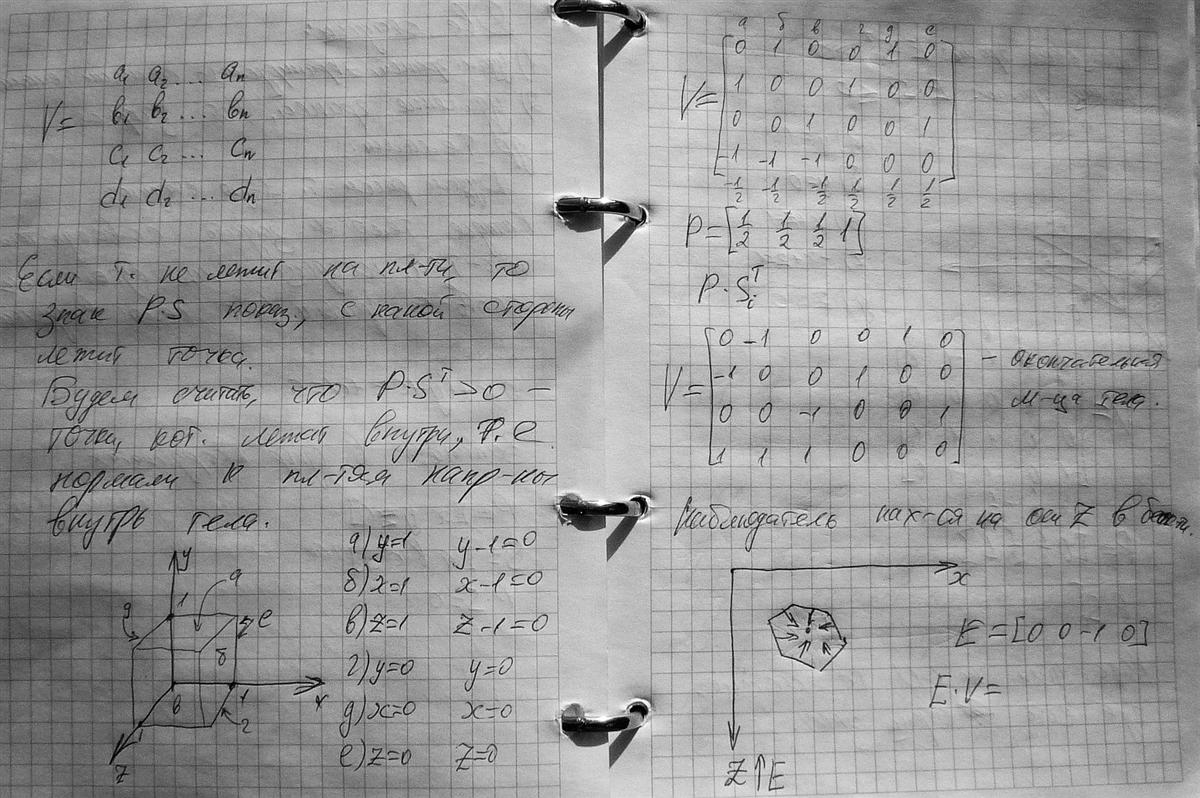 a₁ a₂ ... aₙ
V= в₁ в₂ ... вₙ
c₁ c₂ ... cₙ
d₁ d₂ ... dₙ
Если т. не лежит на пл-ти, то
знак P·S показ., с какой стороны
лежит точка.
Будем считать, что P·Sᵀ>0 –
точки, кот. лежат внутри, т.е.
нормали к пл-тям напр-ны
внутрь тела.
а) y=1 y-1=0
б) x=1 x-1=0
в) z=1 z-1=0
г) y=0 y=0
д) x=0 x=0
е) z=0 z=0
y
1
а
д
е
б
в
1
x
г
1
z
а б в г д е
0 1 0 0 1 0
V= 1 0 0 1 0 0
0 0 1 0 0 1
-1 -1 -1 0 0 0
-1/2 -1/2 -1/2 1/2 1/2 1/2
P=[1/2 1/2 1/2 1]
P·Sᵢᵀ
0 -1 0 0 1 0
V= -1 0 0 1 0 0 – окончательная
0 0 -1 0 0 1 м-ца тела.
1 1 1 0 0 0
Наблюдатель нах-ся на оси Z в
x
E=[0 0 -1 0]
E·V=
Z↑E